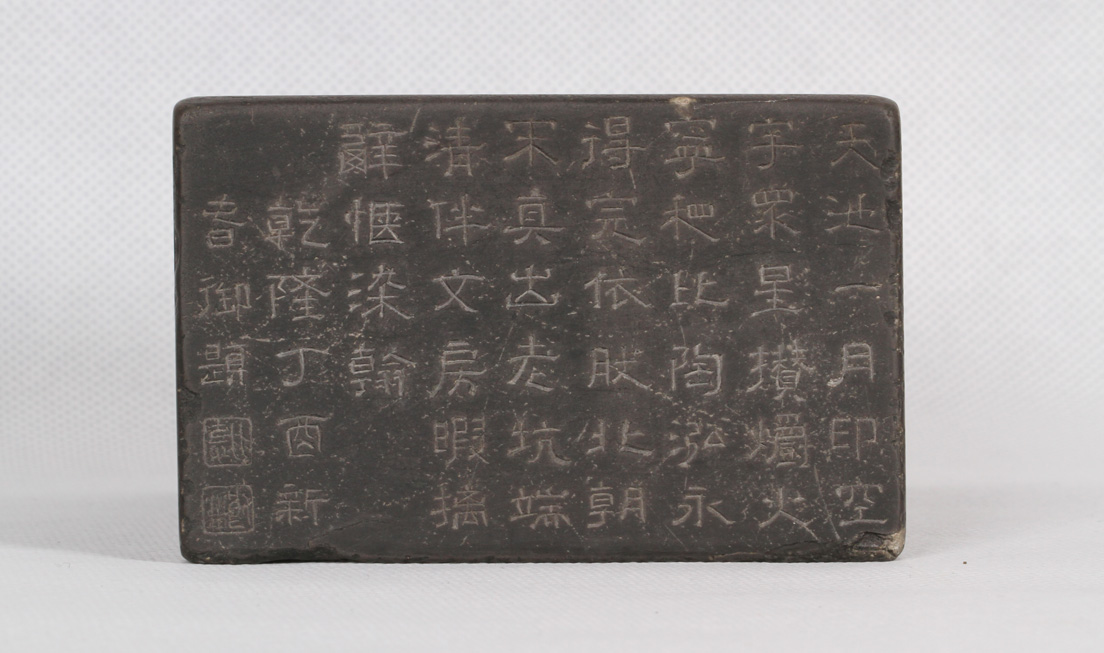 天池一月印空
宇眾星攢爝火
寧比陶泓永
得完依肰北朝
宋真出老坑端
清伴文房暇摛
辭愜染翰
乾隆丁酉新
春御題